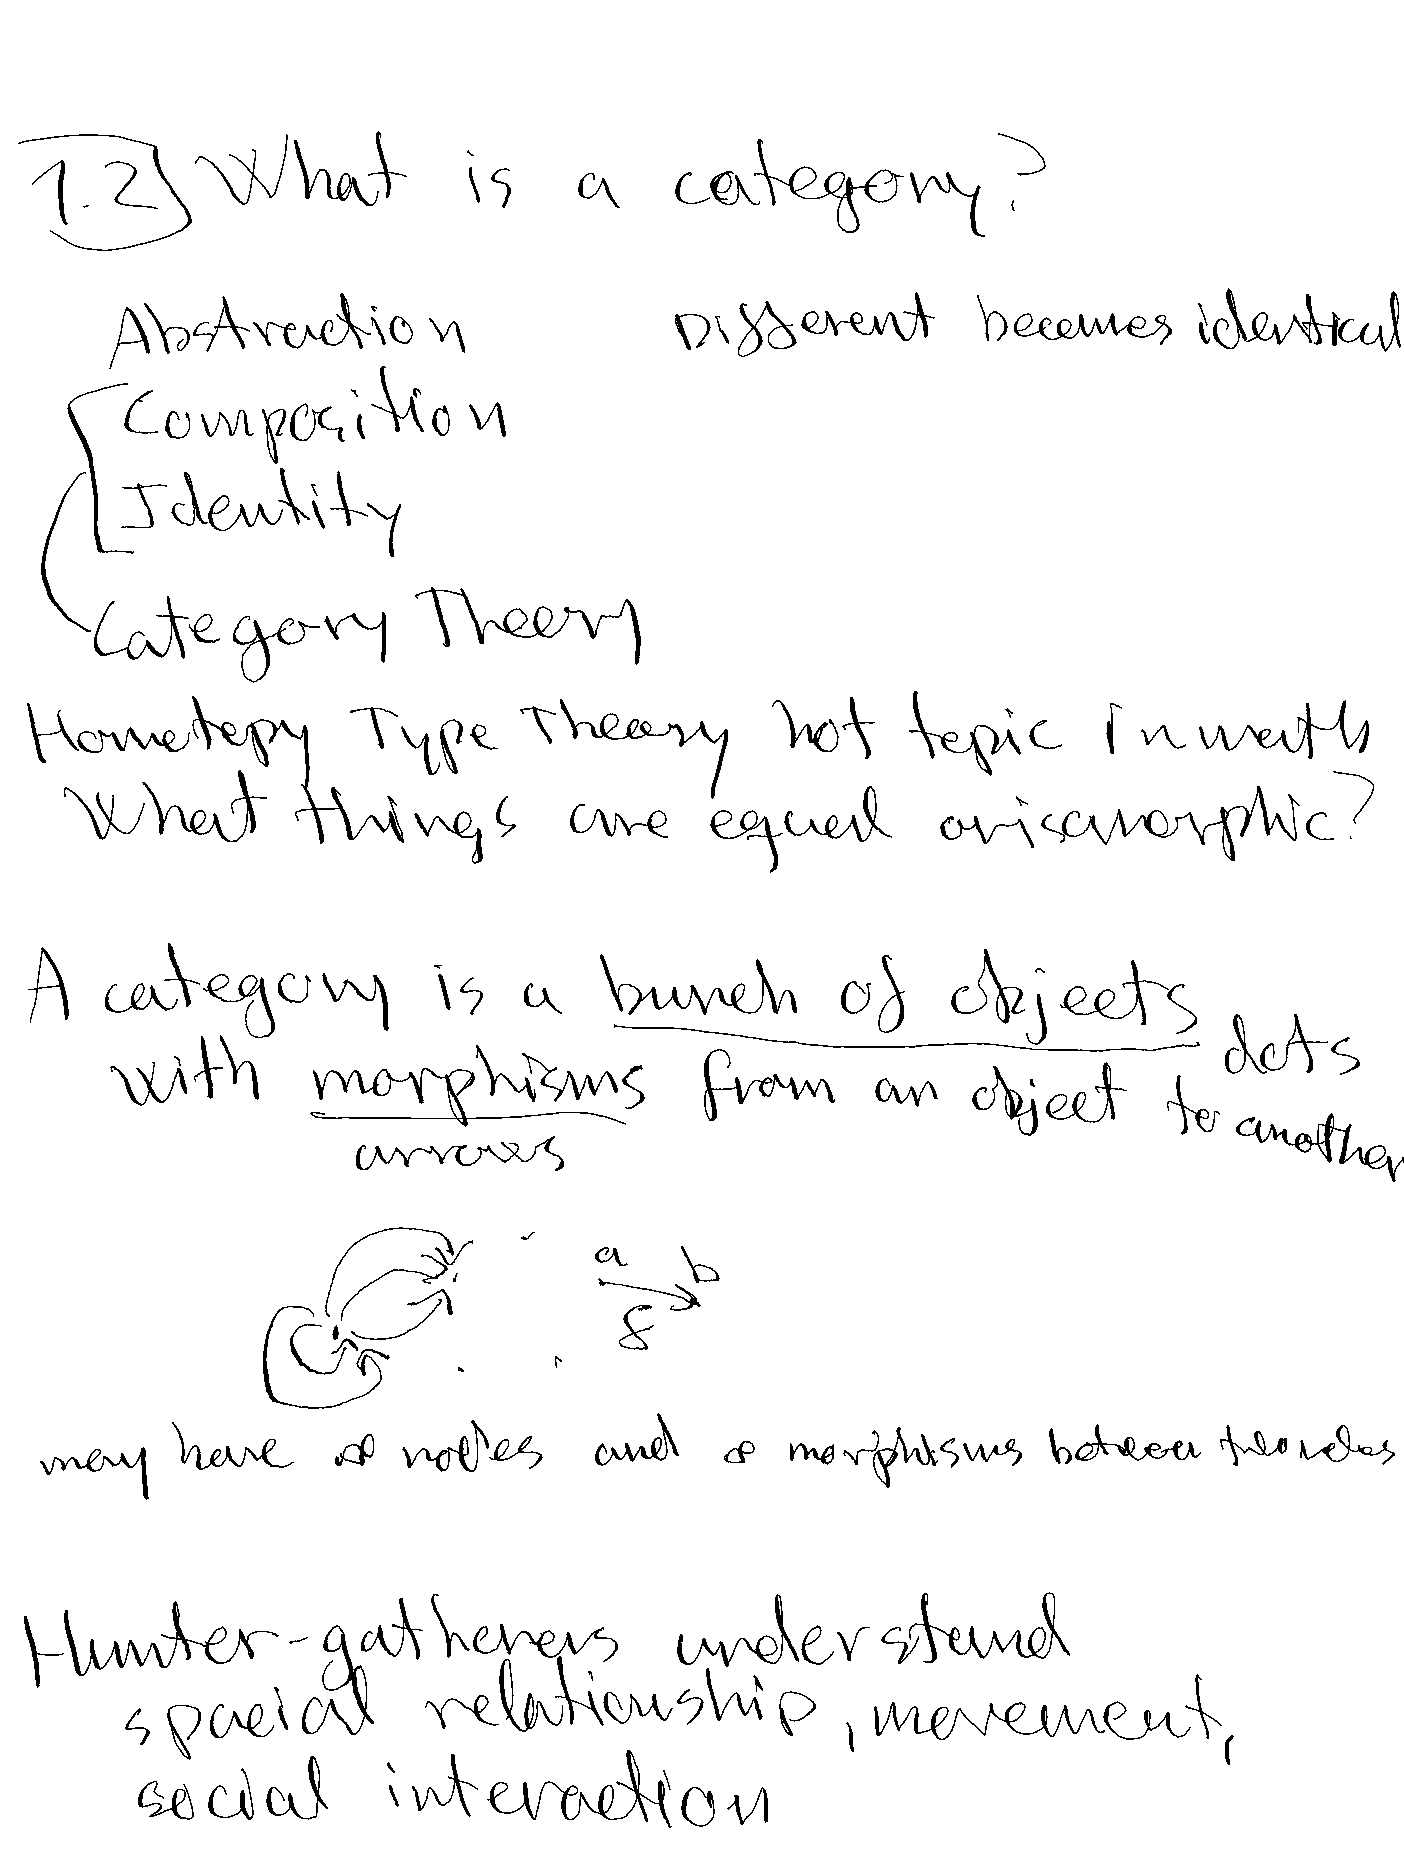 1.2 What is a category?
Abstraction Different becomes identical
Composition
Identity
Category Theory
Homotopy Type Theory hot topic in math
What things are equal or isomorphic?
A category is a bunch of objects
dots
with morphisms from an object to another
arrows
a b
f
may have ∞ nodes and ∞ morphisms between
Hunter-gatherers understand
spacial relationship, movement,
social interaction